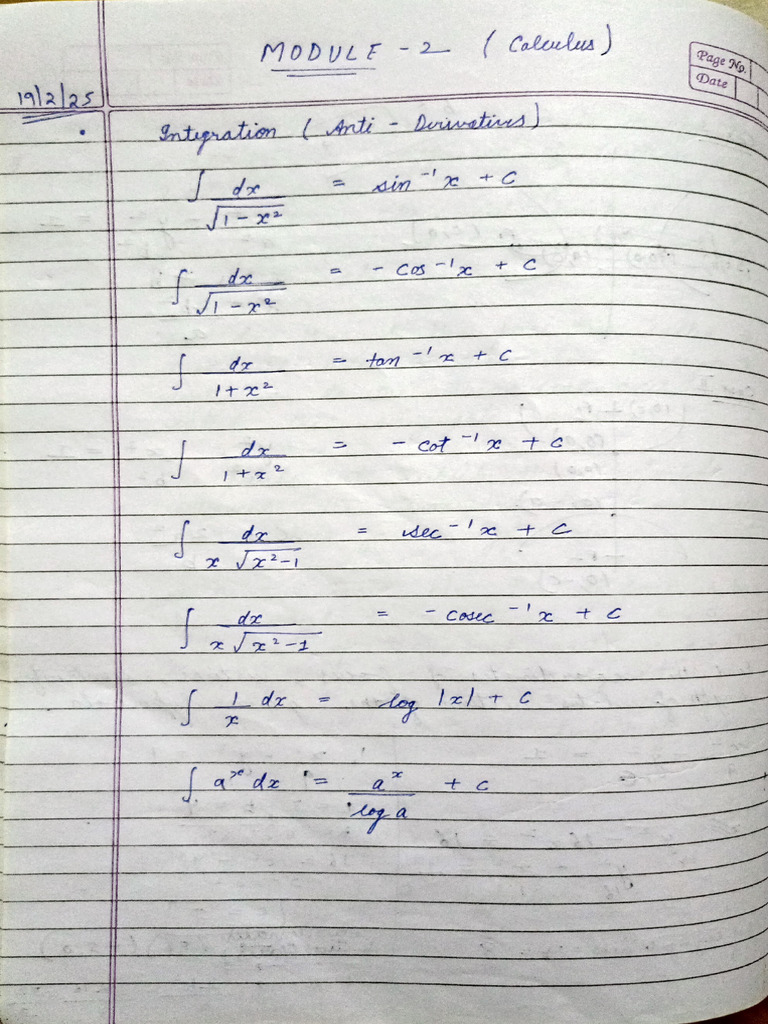 MODULE - 2 (Calculus)
Page No.
Date
19/2/25
• Integration (Anti - Derivatives)
∫ dx / √1 - x² = sin⁻¹x + C
∫ dx / √1 - x² = - cos⁻¹x + C
∫ dx / 1 + x² = tan⁻¹x + C
∫ dx / 1 + x² = - cot⁻¹x + C
∫ dx / x √x² - 1 = sec⁻¹x + C
∫ dx / x √x² - 1 = - cosec⁻¹x + C
∫ 1 / x dx = log |x| + C
∫ aˣ dx = aˣ / log a + C